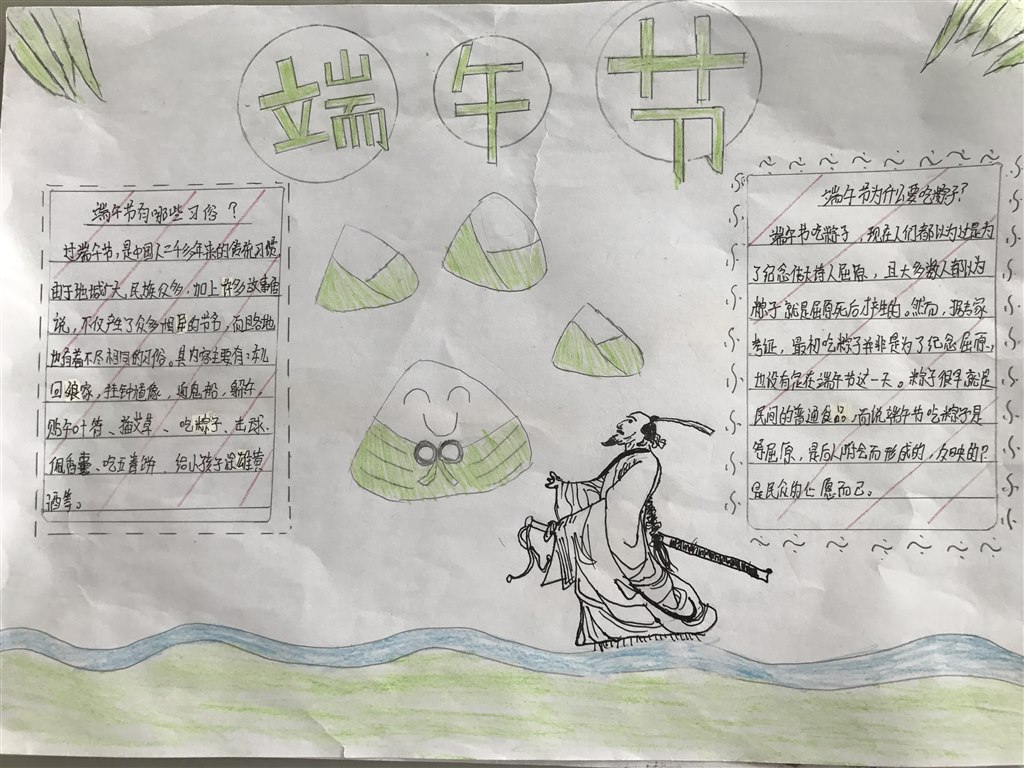 端午节
端午节有哪些习俗？
过端午节，是中国人二千多年来的传统习惯，
由于地域广大，民族众多，加上许多故事传
说，不仅产生了众多相异的节名，而且各地
也有着不尽相同的习俗。其内容主要有：女儿
回娘家，挂钟馗像，迎鬼船、躲午，
贴午叶符、插艾草、吃粽子、击球、
佩香囊、吃五毒饼、给小孩子涂雄黄
酒等。
端午节为什么要吃粽子？
端午节吃粽子，现在人们都以为这是为
了纪念伟大诗人屈原，且大多数人都认为
粽子就是屈原死后才产生的。然而，据专家
考证，最初吃粽子并非是为了纪念屈原，
也没有定在端午节这一天。粽子很早就是
民间的普通食品，而说端午节吃粽子是
祭屈原，是后人附会而形成的，反映的
是民众的心愿而已。